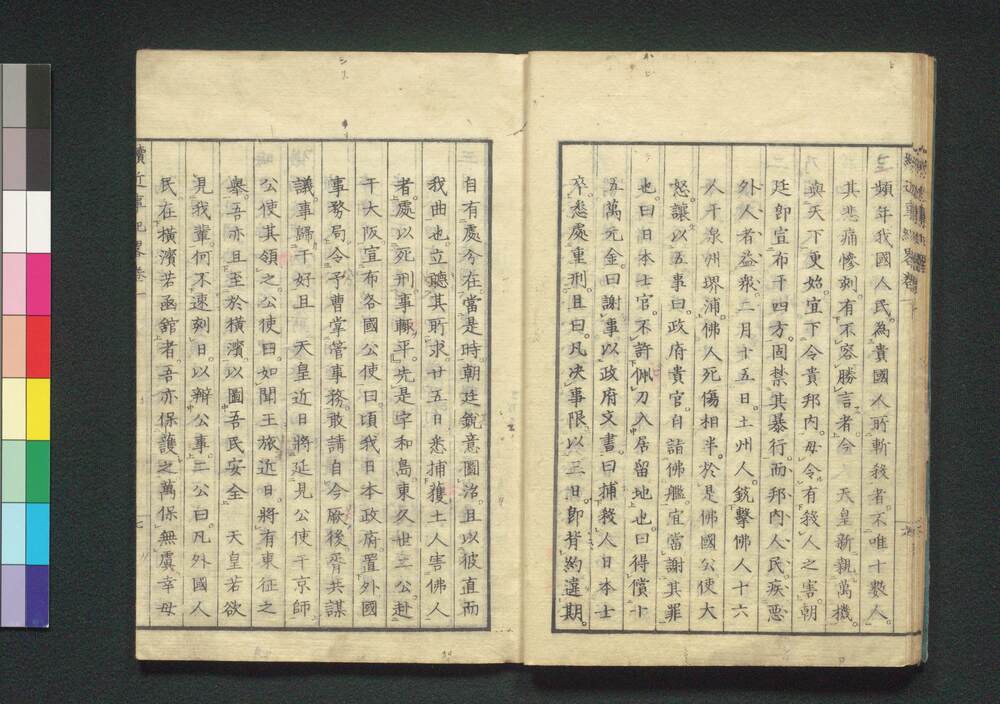 頻年我國人民。為貴國人所斬殺者。不唯十數人。
其悲痛慘刻。有不容勝言者。今　天皇新親萬機。
與天下更始。宜下令貴邦内。毋令有殘人之害。朝
廷卽宣布于四方。固禁其暴行。而邦内人民疾惡
外人者益衆。二月十五日。土州人。銃擊佛人十六
人于泉州堺浦。佛人死傷相半。於是佛國公使大
怒。讓以五事。曰。政府貴官。自詣佛艦。宜當謝其罪
也。曰。日本士官。不許佩刀入居留地也。曰。得償十
五萬元金。曰。謝事以政府文書。曰。捕殘人日本士
卒。悉處重刑。且曰。凡決事限以三日。卽背約違期。
自有處分在。當是時。朝廷銳意圖治。且以彼直而
我曲也。立聽其所求。廿五日悉捕獲土人害佛人
者。處以死刑。事輙平。先是宇和島東久世二公。赴
于大阪。宣布各國公使曰。頃我日本政府。置外國
事務局。令予曹掌管事務。敢請自今厥後。胥共謀
議。事歸于好。且　天皇近日將延見公使于京師。
公使其領之。公使曰。如聞王旅近日。將有東征之
舉。吾亦且至於橫濱。以圖吾民安全　天皇若欲
見我輩。何不速刻日。以辦公事。二公曰。凡外國人
民在橫濱若函館者。吾亦保護之。萬保無虞。幸毋
續近事紀畧卷一